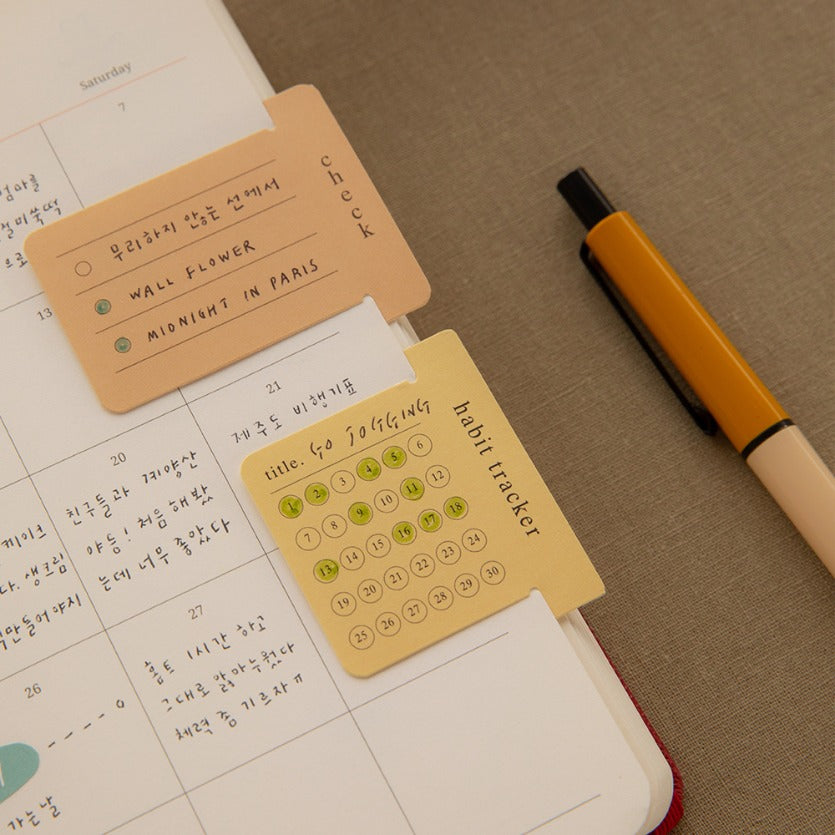 Saturday
7
check
무리하지 않는 선에서
WALL FLOWER
MIDNIGHT IN PARIS
13
21
제주도 비행기표
habit tracker
title. GO JOGGING
1 2 3 4 5 6
7 8 9 10 11 12
13 14 15 16 17 18
19 20 21 22 23 24
25 26 27 28 29 30
20
친구들과 계양산
야등! 처음 해봤
는데 너무 좋았다
케이크
생크림
만들어야지
27
홈트 1시간 하고
그대로 앓아누웠다
체력 좀 기르자ㅠ
26
가는날